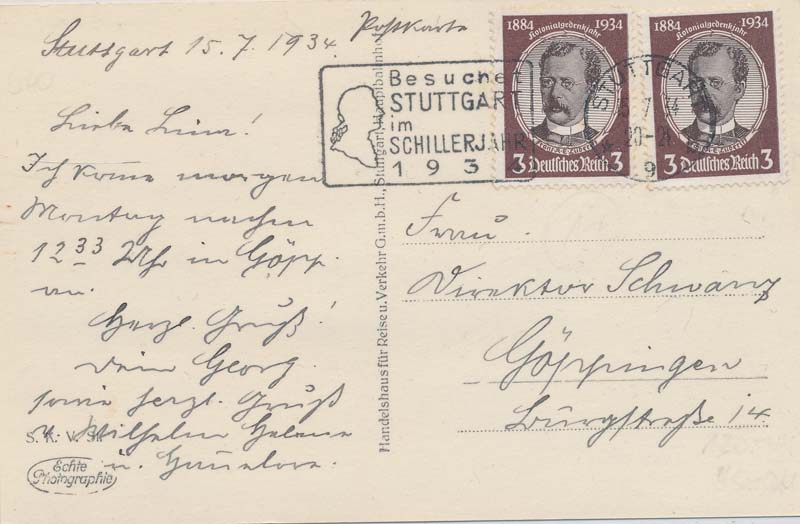 Stuttgart 15.7.1934.
Postkarte
Liebe Lina!
Ich kome morgen
Montag nachm
12 33 Uhr in Göpp.
an.
Herzl. Gruß!
Dein Georg.
sowie herzl. Gruß
Wilhelm Helene
u. Hannelore.
S. K. V.
Echte
Photographie
Handelshaus für Reise u. Verkehr G.m.b.H., Stuttgart, Hauptbahnhof
Besuchet
STUTTGART
im
SCHILLERJAHR
193
1884 1934
Kolonialgedenkjahr
3 Deutsches Reich 3
1884 1934
Kolonialgedenkjahr
3 Deutsches Reich 3
STUTTGART
Frau
Direktor Schwarz
Göppingen
Burgstraße 14.